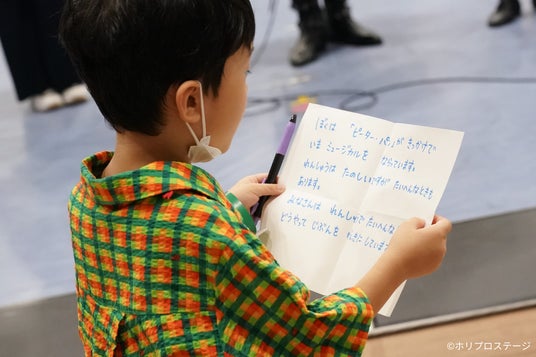 ぼくは 「ピーター・パン」が きっかけで
いま ミュージカルを ならっています。
れんしゅうは たのしいですが たいへんなときも
あります。
みなさんは れんしゅうで たいへんな
どうやって じぶんを
©ホリプロステージ